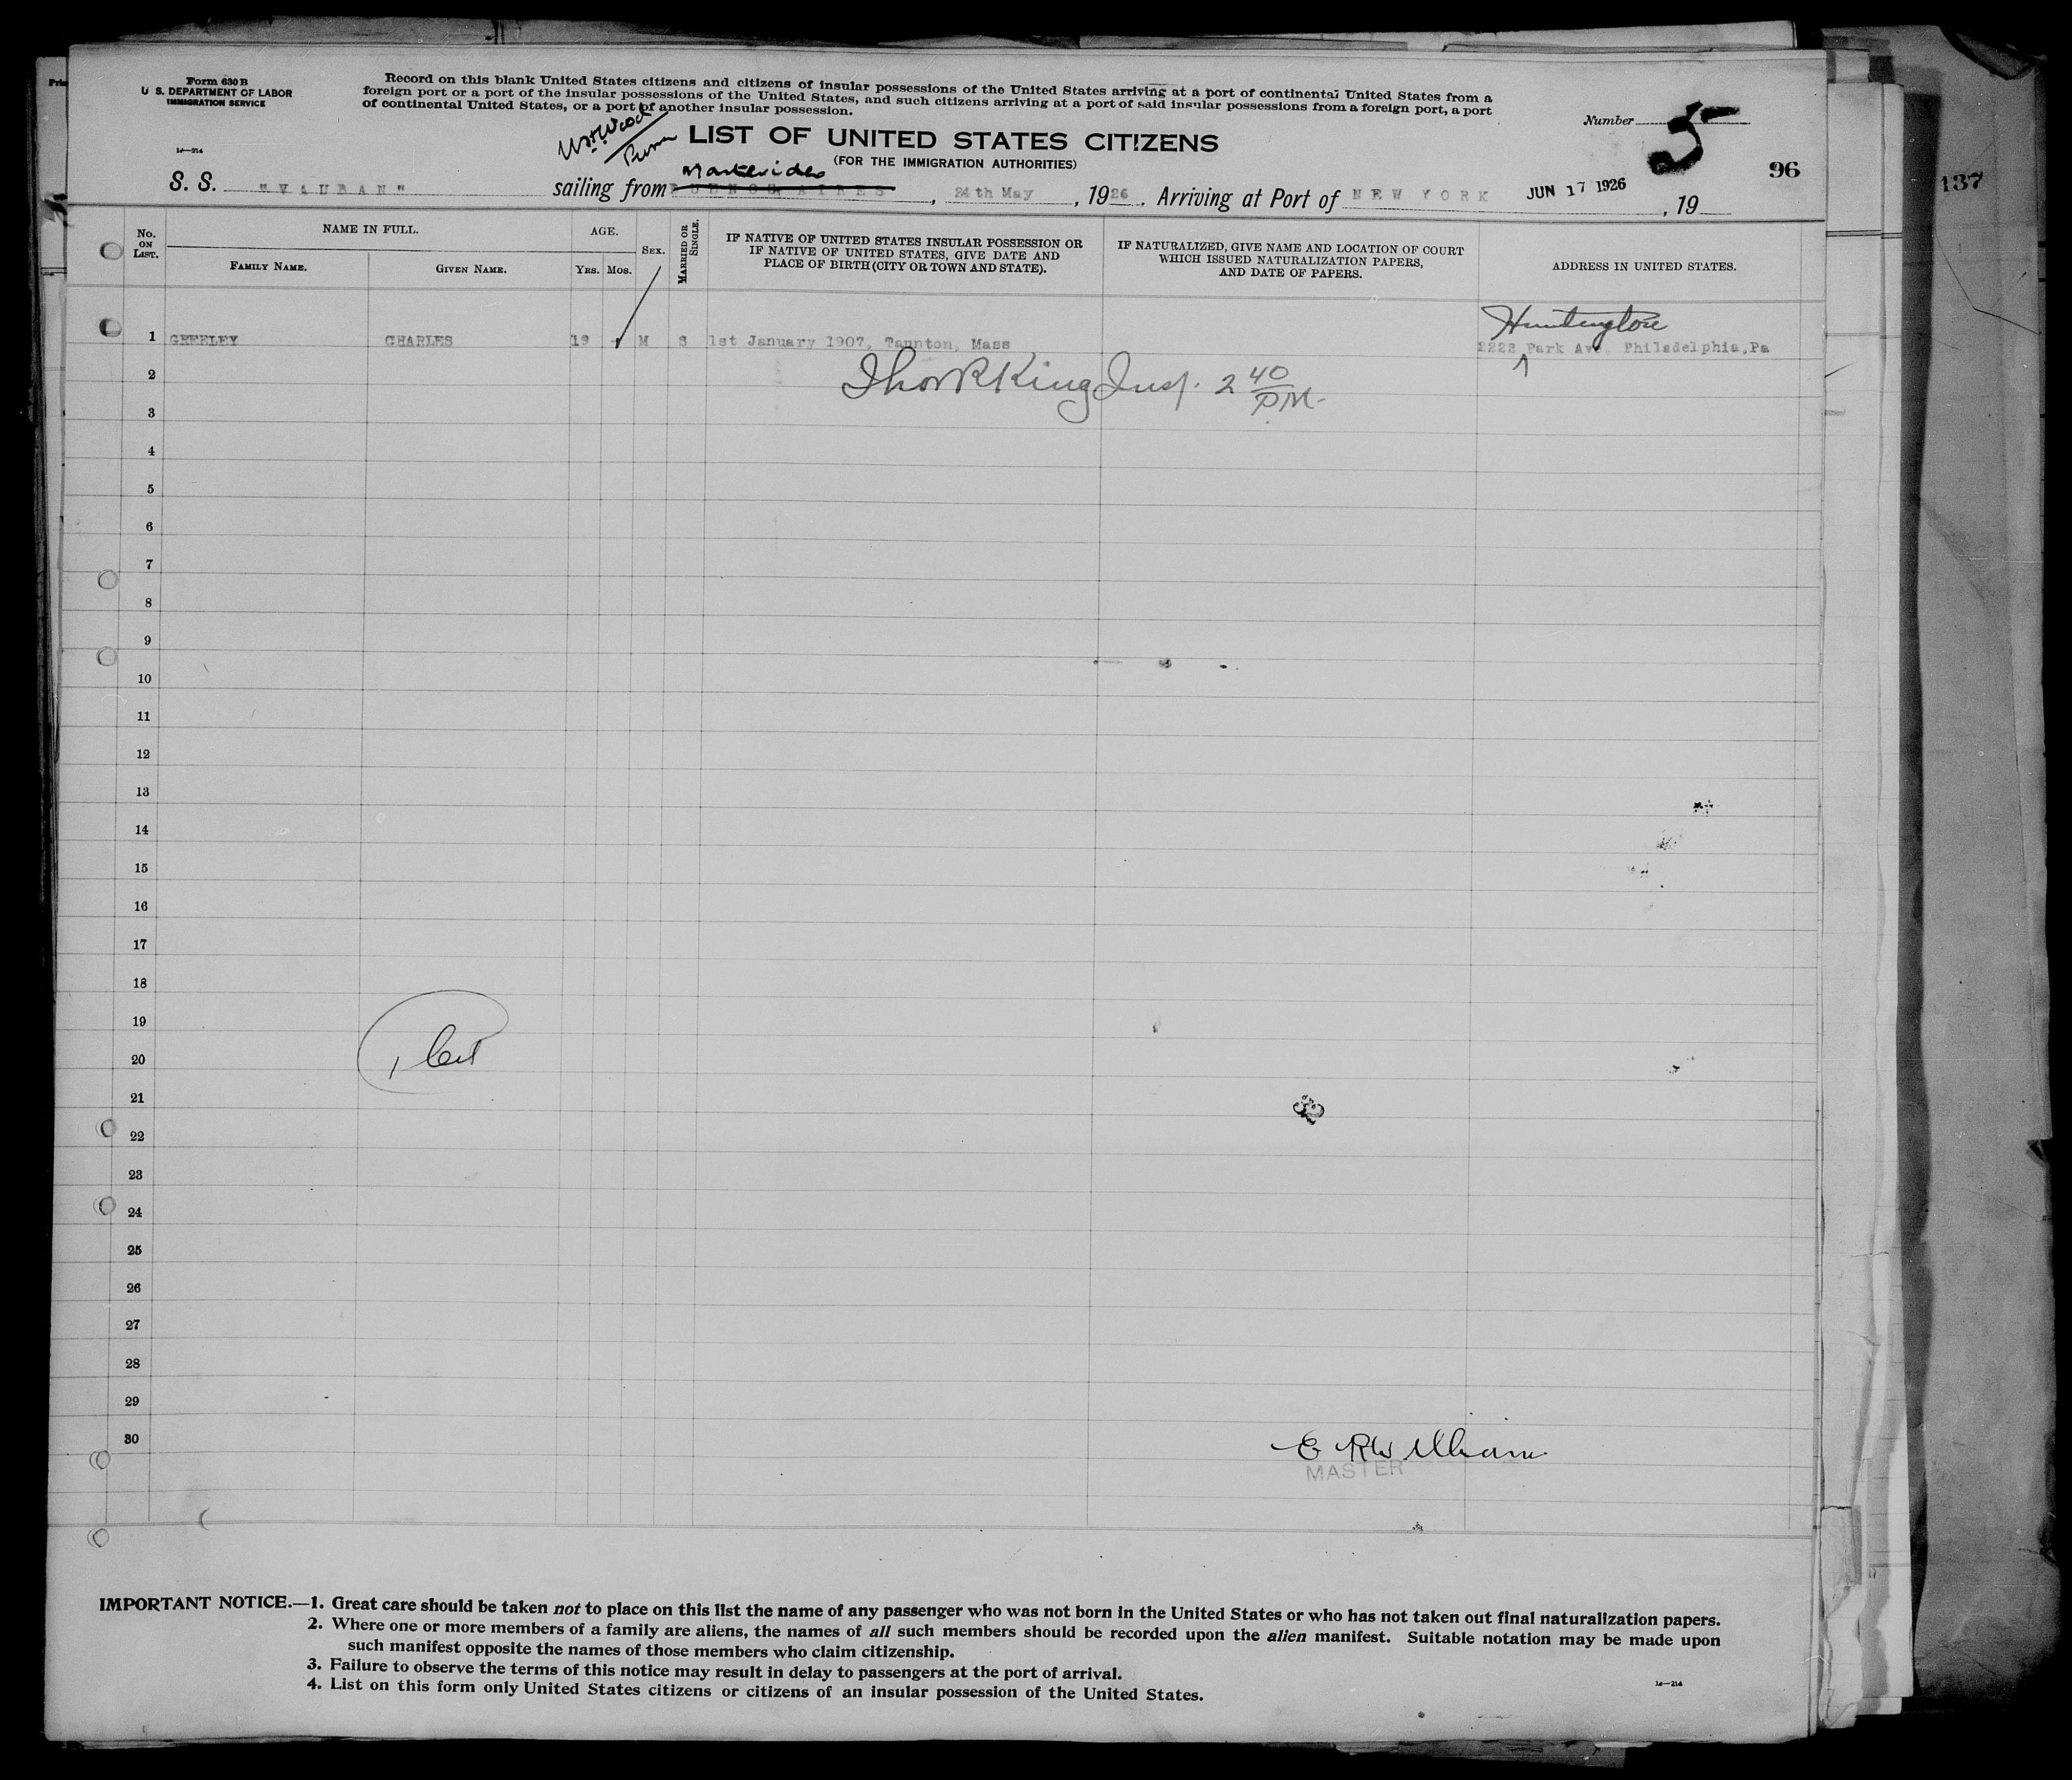 Form 630 B
U. S. DEPARTMENT OF LABOR
IMMIGRATION SERVICE
Record on this blank United States citizens and citizens of insular possessions of the United States arriving at a port of continental United States from a
foreign port or a port of the insular possessions of the United States, and such citizens arriving at a port of said insular possessions from a foreign port, a port
of continental United States, or a port of another insular possession.
Number 5
LIST OF UNITED STATES CITIZENS
(FOR THE IMMIGRATION AUTHORITIES)
14—214
96
137
Montevideo
S. S. "VAUBAN" sailing from BUENOS AIRES, 24th May, 1926. Arriving at Port of NEW YORK JUN 17 1926, 19
No. ON LIST.
NAME IN FULL.
FAMILY NAME.
GIVEN NAME.
AGE.
YRS. MOS.
SEX.
MARRIED OR SINGLE.
IF NATIVE OF UNITED STATES INSULAR POSSESSION OR
IF NATIVE OF UNITED STATES, GIVE DATE AND
PLACE OF BIRTH (CITY OR TOWN AND STATE).
IF NATURALIZED, GIVE NAME AND LOCATION OF COURT
WHICH ISSUED NATURALIZATION PAPERS,
AND DATE OF PAPERS.
ADDRESS IN UNITED STATES.
Huntington
1 GREELEY CHARLES 19 - M S 1st January 1907, Taunton, Mass 2223 Park Ave. Philadelphia, Pa
2
Thos R King Insp. 2 40 PM.
3
4
5
6
7
8
9
10
11
12
13
14
15
16
17
18
19
20
21
22
23
24
25
26
27
28
29
30
E R Williams
MASTER
IMPORTANT NOTICE.—1. Great care should be taken not to place on this list the name of any passenger who was not born in the United States or who has not taken out final naturalization papers.
2. Where one or more members of a family are aliens, the names of all such members should be recorded upon the alien manifest. Suitable notation may be made upon
such manifest opposite the names of those members who claim citizenship.
3. Failure to observe the terms of this notice may result in delay to passengers at the port of arrival.
4. List on this form only United States citizens or citizens of an insular possession of the United States.
14—214